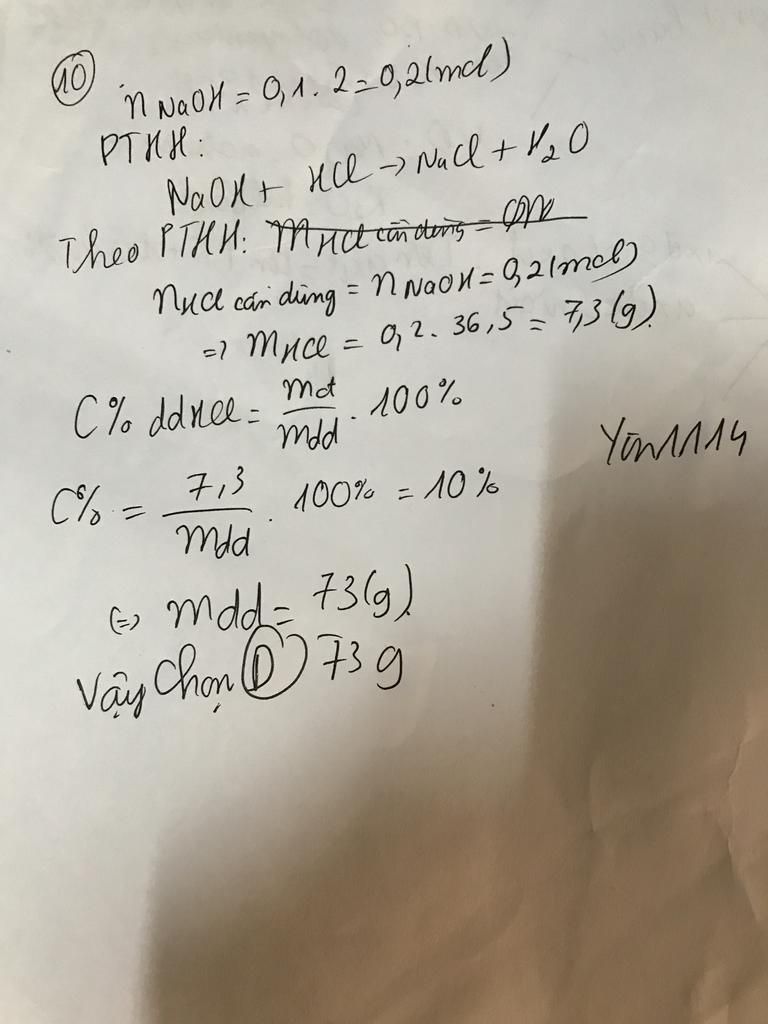 10
n NaOH = 0,1 . 2 = 0,2 (mol)
PTHH:
NaOH + HCl → NaCl + H2O
Theo PTHH: mHCl cần dùng =
nHCl cần dùng = n NaOH = 0,2 (mol)
=> mHCl = 0,2 . 36,5 = 7,3 (g).
C% ddHCl = mct/mdd . 100%
Yin1114
C% = 7,3/mdd . 100% = 10%
(=) mdd = 73 (g).
Vậy Chọn D) 73 g